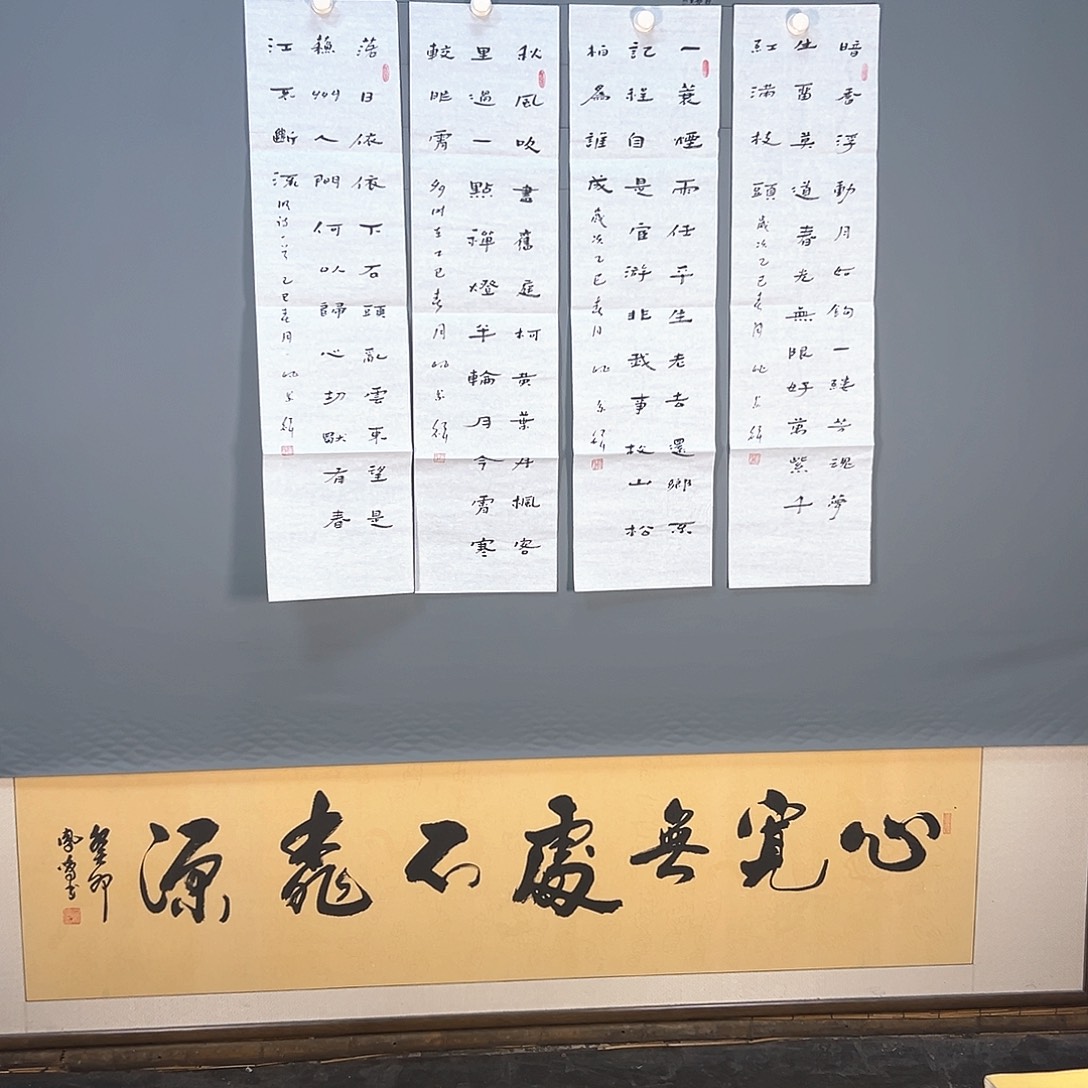 暗香浮動月如鉤一縷芳魂夢
生留莫道春光無限好萬紫千
紅滿枝頭 歲次乙巳春月
一蓑煙雨任平生老去還鄉不
記程自是宦游非我事故山松
柏為誰成 歲次乙巳春月
秋風吹盡舊庭柯黃葉丹楓客
里過一點禪燈半輪月今宵寒
較昨宵多 乙巳春月
落日依依下石頭亂雲東望是
蘇州人間何以歸心切獸有春
江不斷流 乙巳春月
心寬無處不桃源
癸卯